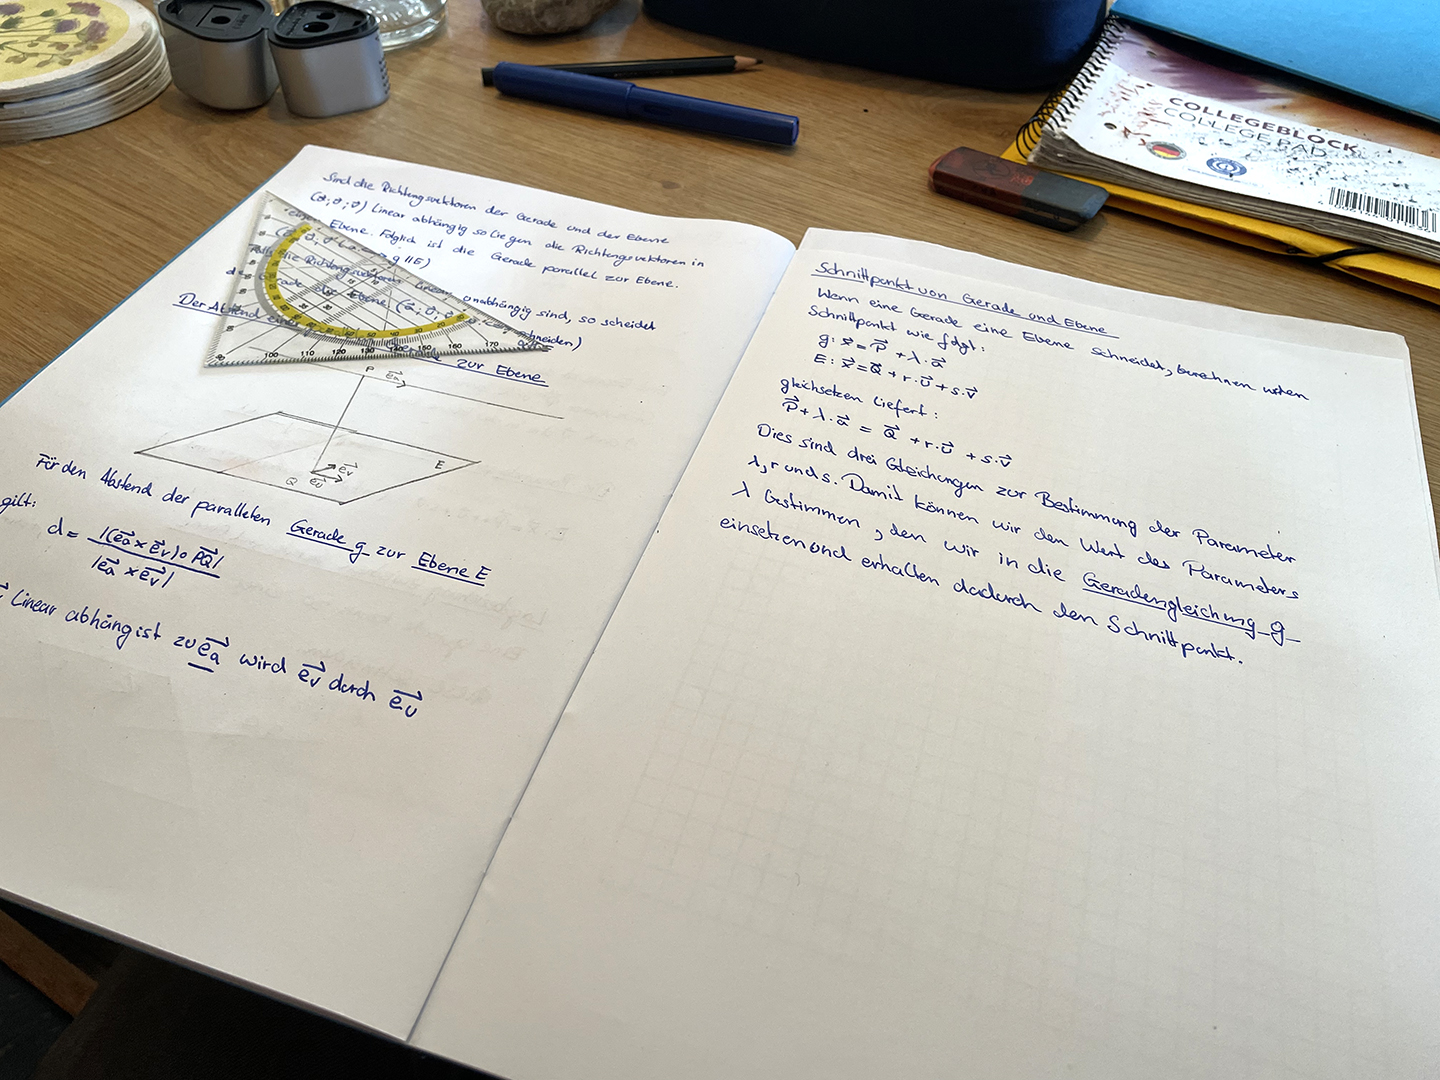 Sind die Richtungsvektoren der Gerade und der Ebene
(a⃗; u⃗; v⃗) Linear abhängig so liegen die Richtungsvektoren in
Ebene. Folglich ist die Gerade parallel zur Ebene.
g || E)
die Richtungsvektoren Linear unabhängig sind, so scheidet
Ebene
schneiden)
Der Abstand einer
zur Ebene
P
e⃗a
E
Q
e⃗v
e⃗u
Für den Abstand der parallelen Gerade g zur Ebene E
gilt:
d = |(e⃗a × e⃗v) ∘ P⃗Q| / |e⃗a × e⃗v|
Linear abhäng ist zu e⃗a wird e⃗v durch e⃗u
Schnittpunkt von Gerade und Ebene
Wenn eine Gerade eine Ebene schneidet, berechnen
Schnittpunkt wie folgt:
g: x⃗ = P⃗ + λ · a⃗
E: x⃗ = Q⃗ + r · u⃗ + s · v⃗
gleichsetzen liefert:
P⃗ + λ · a⃗ = Q⃗ + r · u⃗ + s · v⃗
Dies sind drei Gleichungen zur Bestimmung der Parameter
λ, r und s. Damit können wir den Wert des Parameters
λ bestimmen, den wir in die Geradengleichung g
einsetzen und erhalten dadurch den Schnittpunkt.
COLLEGEBLOCK
COLLEGE PAD